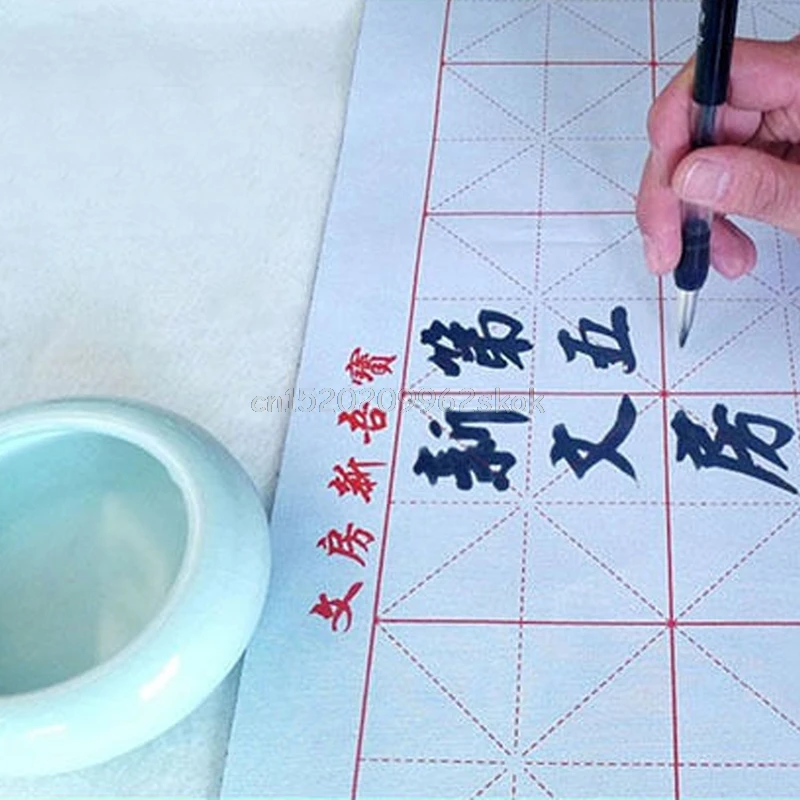 第五
新文房
文房新吾寶
cn1520209962skok